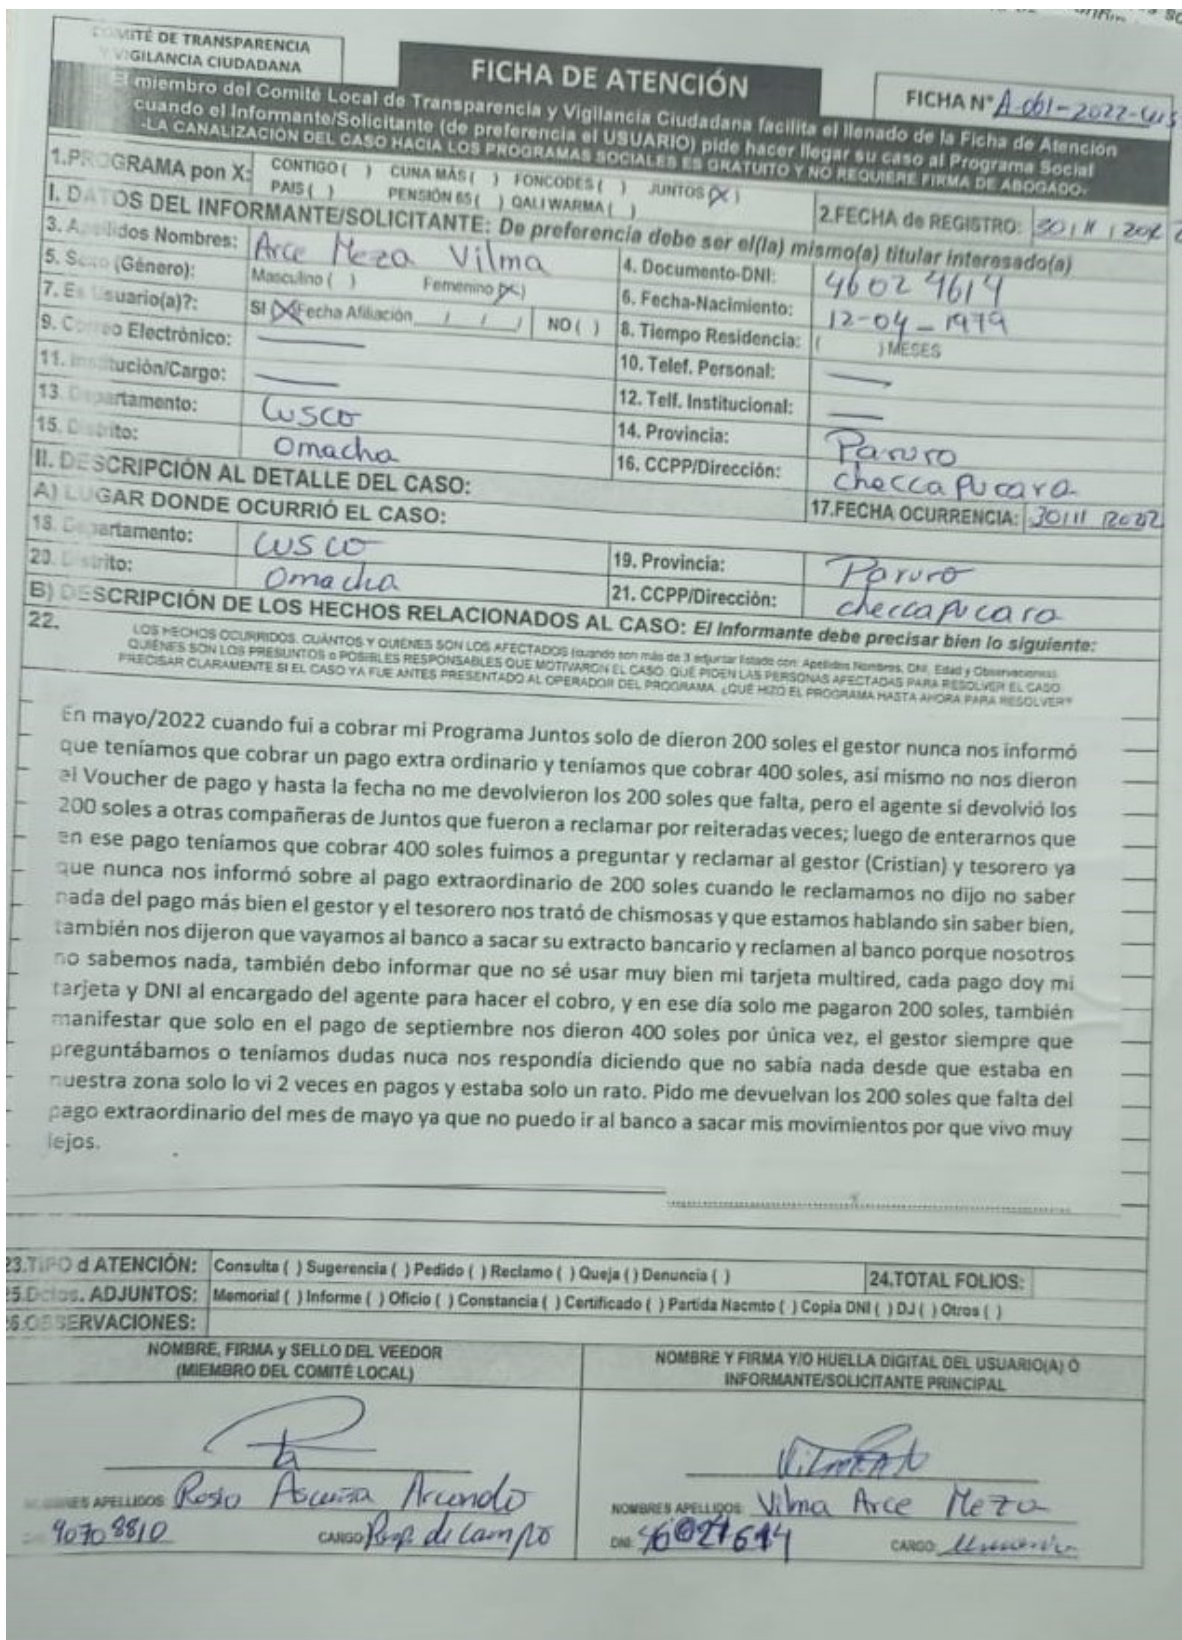 COMITÉ DE TRANSPARENCIA
Y VIGILANCIA CIUDADANA
FICHA DE ATENCIÓN
FICHA N° A-061-2022-
El miembro del Comité Local de Transparencia y Vigilancia Ciudadana facilita el llenado de la Ficha de Atención
cuando el Informante/Solicitante (de preferencia el USUARIO) pide hacer llegar su caso al Programa Social
-LA CANALIZACIÓN DEL CASO HACIA LOS PROGRAMAS SOCIALES ES GRATUITO Y NO REQUIERE FIRMA DE ABOGADO-
1.PROGRAMA pon X: CONTIGO ( ) CUNA MÁS ( ) FONCODES ( ) JUNTOS (X)
PAIS ( ) PENSIÓN 65 ( ) QALI WARMA ( )
2.FECHA de REGISTRO: 30/11/2022
I. DATOS DEL INFORMANTE/SOLICITANTE: De preferencia debe ser el(la) mismo(a) titular interesado(a)
3. Apellidos Nombres: Arce Meza Vilma 4. Documento-DNI: 46024614
5. Sexo (Género): Masculino ( ) Femenino (X) 6. Fecha-Nacimiento: 12-04-1979
7. Es Usuario(a)?: SI (X) Fecha Afiliación / / NO ( ) 8. Tiempo Residencia: ( ) MESES
9. Correo Electrónico: — 10. Telef. Personal: —
11. Institución/Cargo: — 12. Telf. Institucional: —
13. Departamento: Cusco 14. Provincia: Paruro
15. Distrito: Omacha 16. CCPP/Dirección: Checcapucara
II. DESCRIPCIÓN AL DETALLE DEL CASO:
A) LUGAR DONDE OCURRIÓ EL CASO: 17.FECHA OCURRENCIA: 30/11/2022
18. Departamento: Cusco 19. Provincia: Paruro
20. Distrito: Omacha 21. CCPP/Dirección: checcapucara
B) DESCRIPCIÓN DE LOS HECHOS RELACIONADOS AL CASO: El Informante debe precisar bien lo siguiente:
22. LOS HECHOS OCURRIDOS, CUÁNTOS Y QUIÉNES SON LOS AFECTADOS (cuando son más de 3 adjuntar listado con: Apellidos Nombres, DNI, Edad y Observaciones)
QUIÉNES SON LOS PRESUNTOS o POSIBLES RESPONSABLES QUE MOTIVARON EL CASO. QUÉ PIDEN LAS PERSONAS AFECTADAS PARA RESOLVER EL CASO
PRECISAR CLARAMENTE SI EL CASO YA FUE ANTES PRESENTADO AL OPERADOR DEL PROGRAMA. ¿QUÉ HIZO EL PROGRAMA HASTA AHORA PARA RESOLVER?
En mayo/2022 cuando fui a cobrar mi Programa Juntos solo de dieron 200 soles el gestor nunca nos informó
que teníamos que cobrar un pago extra ordinario y teníamos que cobrar 400 soles, así mismo no nos dieron
el Voucher de pago y hasta la fecha no me devolvieron los 200 soles que falta, pero el agente si devolvió los
200 soles a otras compañeras de Juntos que fueron a reclamar por reiteradas veces; luego de enterarnos que
en ese pago teníamos que cobrar 400 soles fuimos a preguntar y reclamar al gestor (Cristian) y tesorero ya
que nunca nos informó sobre al pago extraordinario de 200 soles cuando le reclamamos no dijo no saber
nada del pago más bien el gestor y el tesorero nos trató de chismosas y que estamos hablando sin saber bien,
también nos dijeron que vayamos al banco a sacar su extracto bancario y reclamen al banco porque nosotros
no sabemos nada, también debo informar que no sé usar muy bien mi tarjeta multired, cada pago doy mi
tarjeta y DNI al encargado del agente para hacer el cobro, y en ese día solo me pagaron 200 soles, también
manifestar que solo en el pago de septiembre nos dieron 400 soles por única vez, el gestor siempre que
preguntábamos o teníamos dudas nuca nos respondía diciendo que no sabía nada desde que estaba en
nuestra zona solo lo vi 2 veces en pagos y estaba solo un rato. Pido me devuelvan los 200 soles que falta del
pago extraordinario del mes de mayo ya que no puedo ir al banco a sacar mis movimientos por que vivo muy
lejos.
23.TIPO d ATENCIÓN: Consulta ( ) Sugerencia ( ) Pedido ( ) Reclamo ( ) Queja ( ) Denuncia ( ) 24.TOTAL FOLIOS:
25.Dctos. ADJUNTOS: Memorial ( ) Informe ( ) Oficio ( ) Constancia ( ) Certificado ( ) Partida Nacmto ( ) Copia DNI ( ) DJ ( ) Otros ( )
26.OBSERVACIONES:
NOMBRE, FIRMA y SELLO DEL VEEDOR
(MIEMBRO DEL COMITÉ LOCAL)
NOMBRE Y FIRMA Y/O HUELLA DIGITAL DEL USUARIO(A) Ó
INFORMANTE/SOLICITANTE PRINCIPAL
NOMBRES APELLIDOS: Rosio Arcondo
DNI: 90708810 CARGO: Resp. de campo
NOMBRES APELLIDOS: Vilma Arce Meza
DNI: 46024614 CARGO: Usuaria